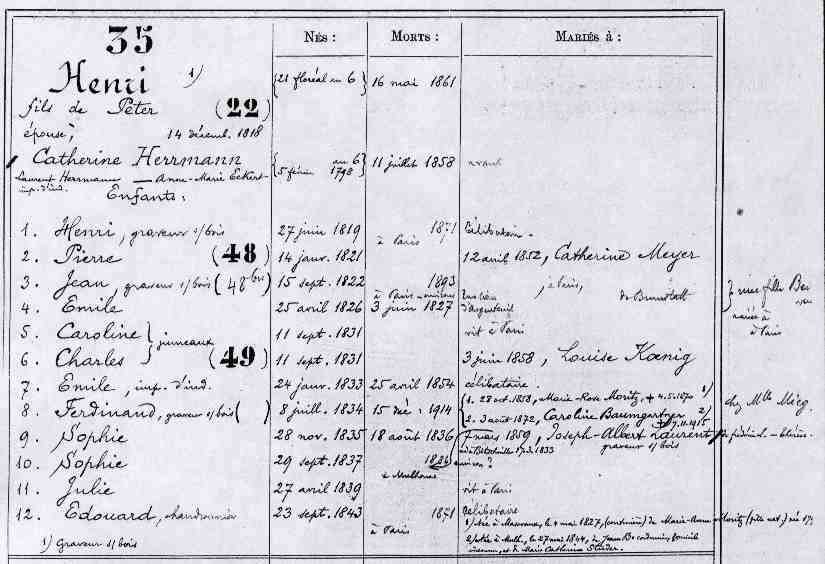 35
NÉS : MORTS : MARIÉS à :
Henri 1) {21 floréal an 6} 16 mai 1861
fils de Péter (22)
épouse, 14 décemb. 1818
Catherine Herrmann {5 février an 6 1798} 11 juillet 1858
Laurent Herrmann — Anne-Marie Eckert
imp. d'ind.
Enfants :
1. Henri, graveur s/bois 27 juin 1819 1871 à Paris Célibataire.
2. Pierre (48) 14 janv. 1821 12 avril 1852, Catherine Meyer
3. Jean, graveur s/bois (48 bis) 15 sept. 1822 1893 à Paris à Paris, de Brunstatt
4. Emile 25 avril 1826 3 juin 1827
5. Caroline } jumeaux 11 sept. 1831 vit à Paris
6. Charles } (49) 11 sept. 1831 3 juin 1858, Louise Kœnig
7. Emile, imp. d'ind. 24 janv. 1833 25 avril 1854 célibataire.
8. Ferdinand, graveur s/bois ( ) 8 juill. 1834 15 déc. 1914 {1. 28 oct. 1858, Marie-Rose Moritz, + 4.5.1870 1)
2. 3 août 1872, Caroline Baumgartner 2) + 7.11.1915
9. Sophie 28 nov. 1835 18 août 1836 7 mars 1859, Joseph-Albert Laurent
graveur s/bois
10. Sophie 29 sept. 1837 1836 à Mulhouse
11. Julie 27 avril 1839 vit à Paris
12. Edouard, chaudronnier 23 sept. 1843 1871 à Paris célibataire
1) Graveur s/bois
1) née à Masevaux, le 4 mai 1827, de Marie-Anne Moritz
2) née à Mulh., le 27 mai 1844, de Jean Bte et de Marie Catherine Studer.
une fille
mariée à
à Paris
chez Mlle Mieg